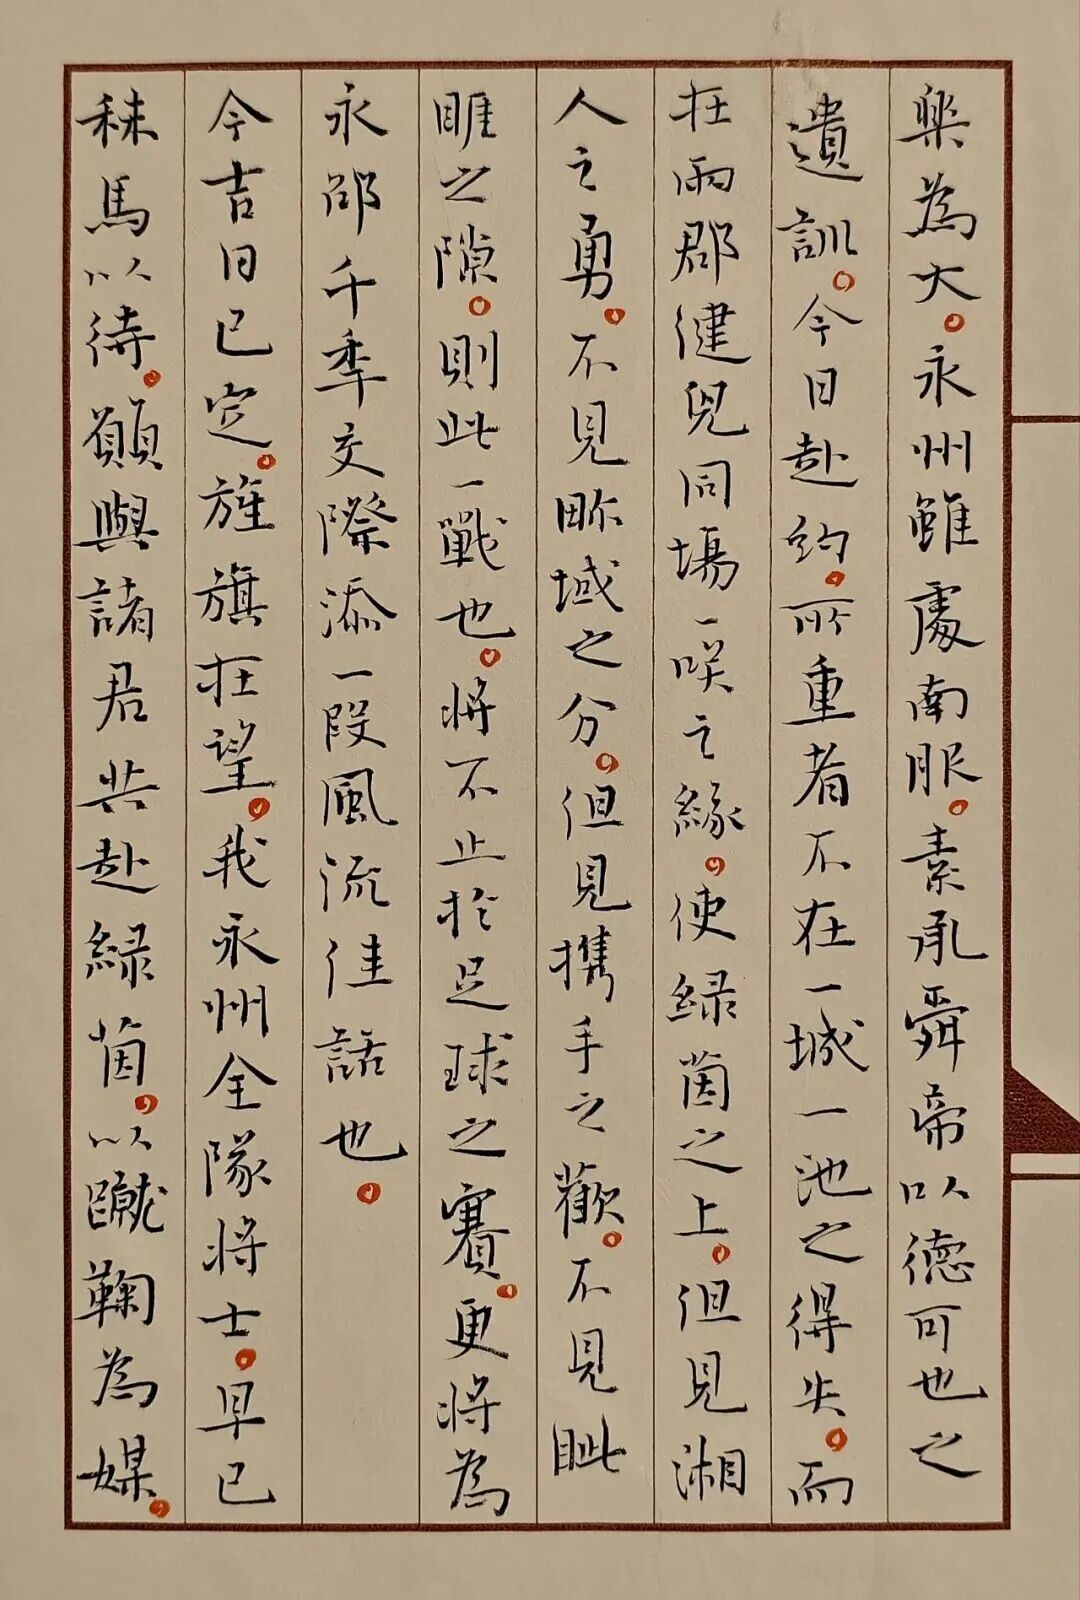 樂為大。永州雖處南服。素承舜帝以德可也之
遺訓。今日赴約。所重者不在一城一池之得失。而
在兩郡健兒同場一笑之緣。使綠茵之上。但見湘
人之勇。不見畛域之分。但見攜手之歡。不見眦
睢之隙。則此一戰也。將不止於足球之賽。更將為
永邵千年交際添一段風流佳話也。
今吉日已定。旌旗在望。我永州全隊將士。早已
秣馬以待。願與諸君共赴綠茵。以蹴鞠為媒。